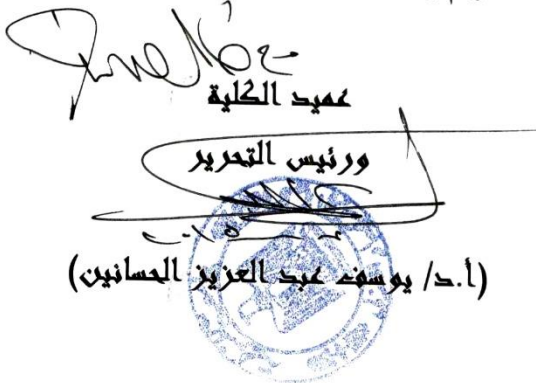 عميد الكلية
ورئيس التحرير
(أ.د/ يوسف عبد العزيز الحسانين)